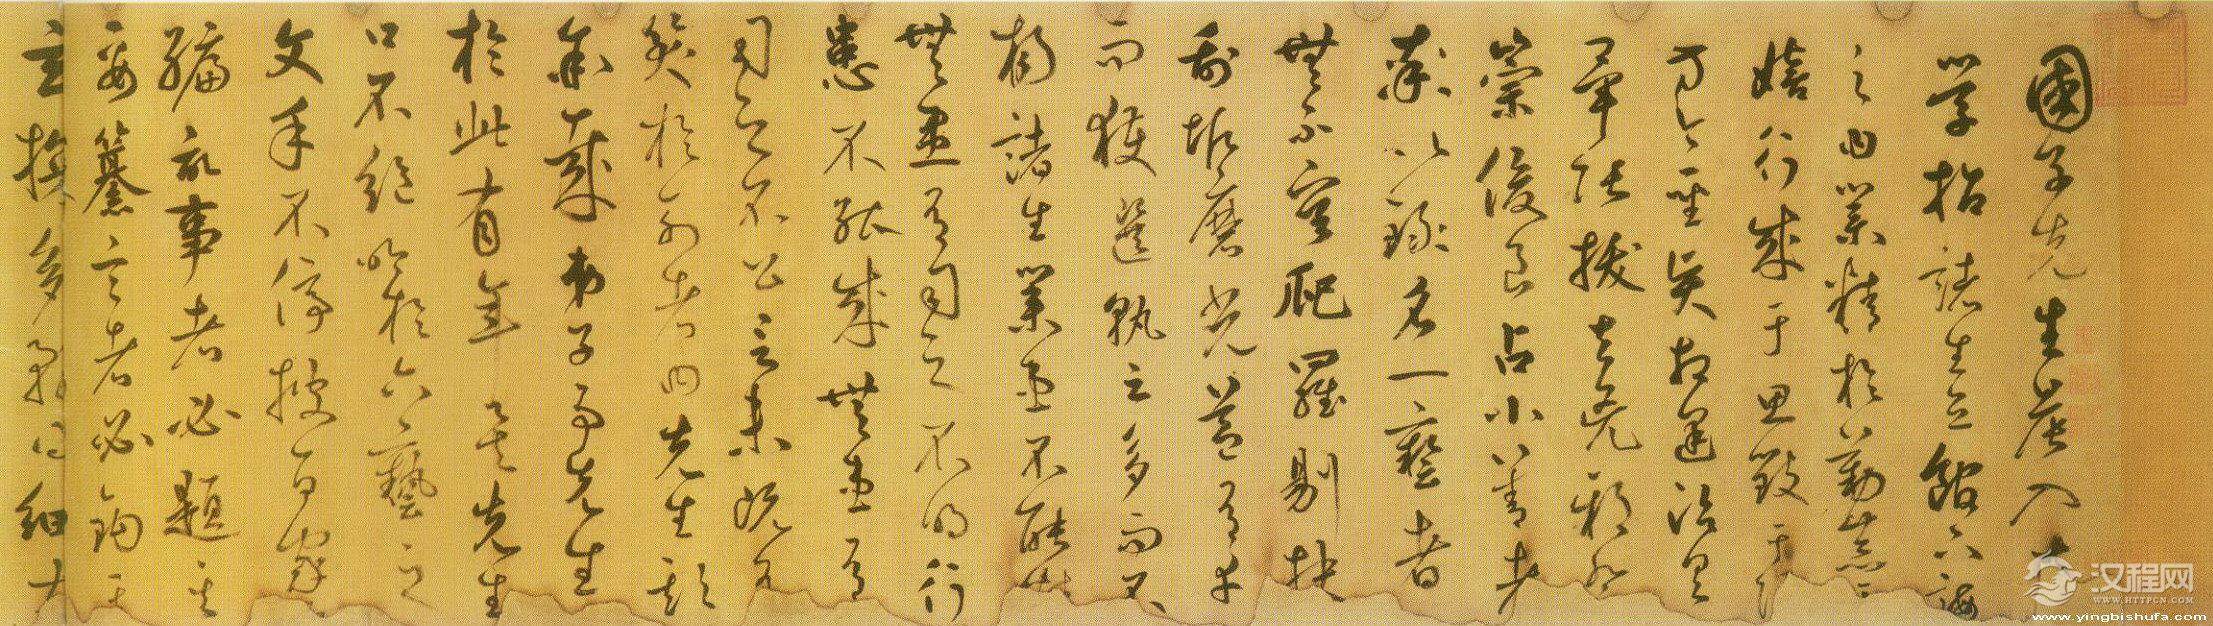 國子先生晨入太
學招諸生立館下誨
之曰業精於勤荒于
嬉行成于思毀于
方今聖賢相逢治具
畢張拔去兇邪登
崇俊良占小善者
率以錄名一藝者
無不庸爬羅剔抉
刮垢磨光蓋有幸
而獲選孰云多而不
揚諸生業患不能精
無患有司之不明行
患不能成無患有
司之不公言未既有
笑於列者曰先生欺
余哉弟子事先生
於此有年矣先生
口不絕吟於六藝之
文手不停披百家
編記事者必題其
要纂言者必鉤其
玄多務得細大
汉程网
WWW.HTTPCN.COM
www.yingbishufa.com